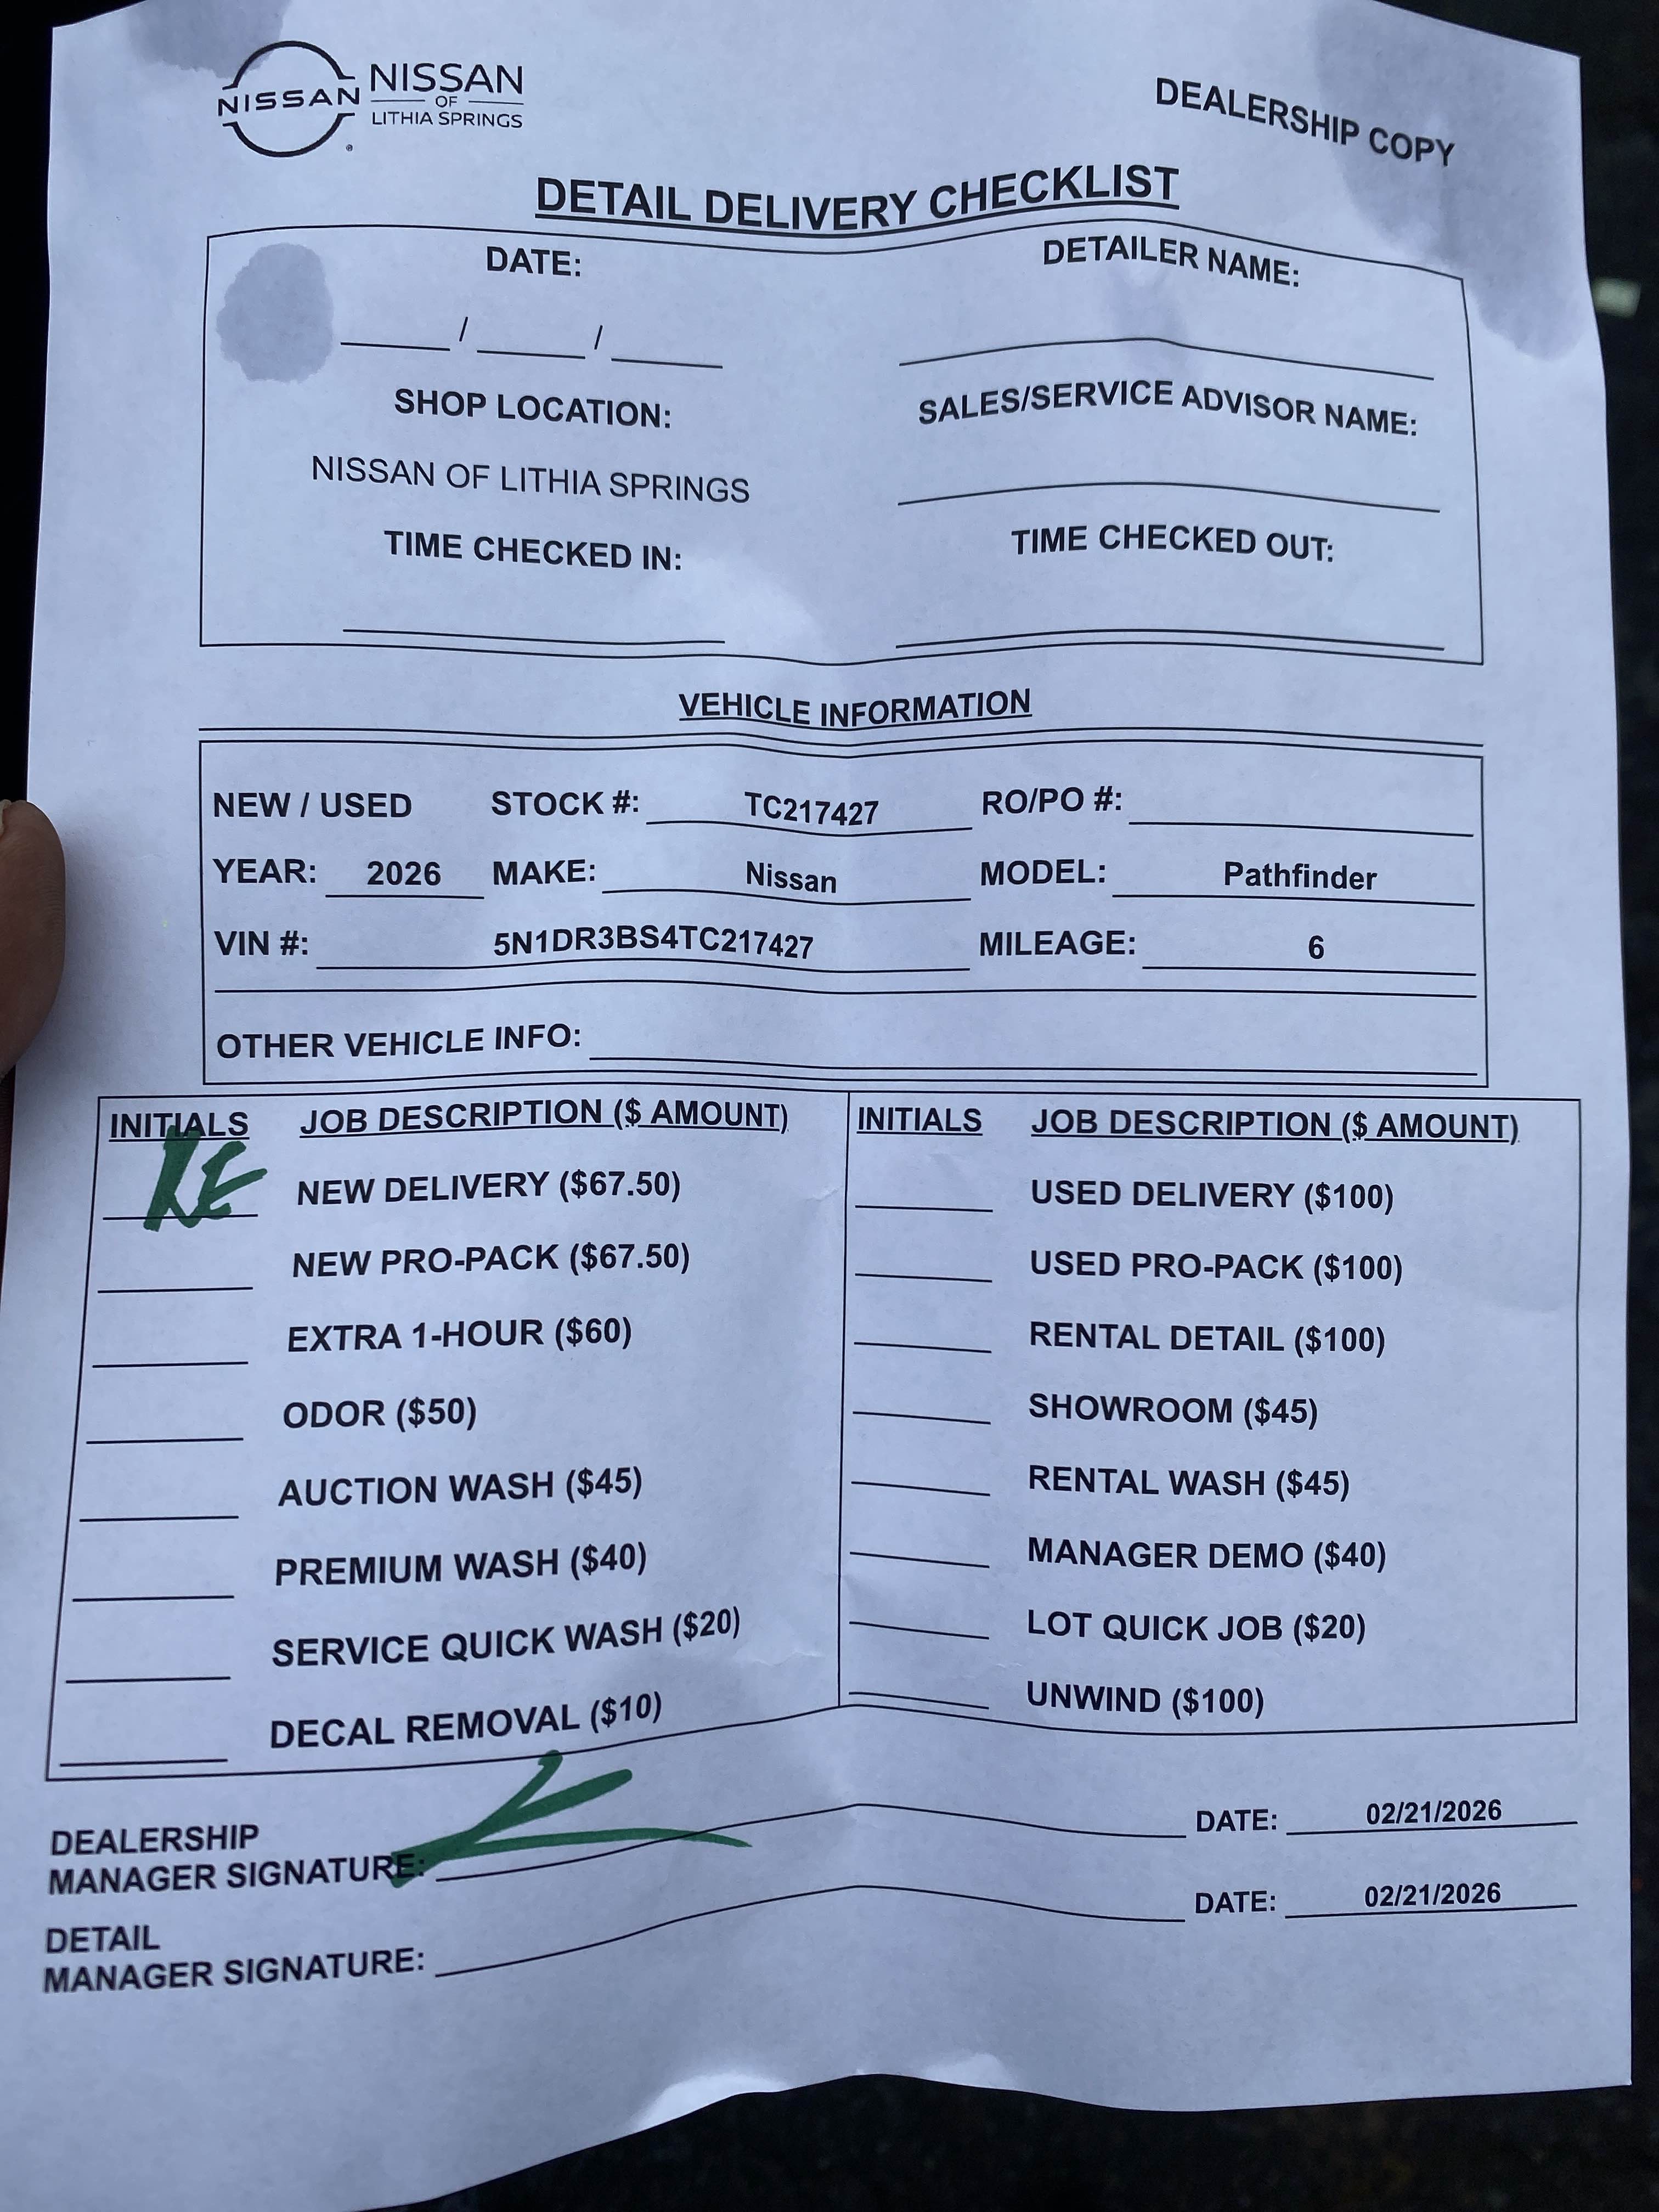 NISSAN
NISSAN
OF
LITHIA SPRINGS
DEALERSHIP COPY
DETAIL DELIVERY CHECKLIST
DATE: DETAILER NAME:
/ /
SHOP LOCATION: SALES/SERVICE ADVISOR NAME:
NISSAN OF LITHIA SPRINGS
TIME CHECKED IN: TIME CHECKED OUT:
VEHICLE INFORMATION
NEW / USED STOCK #: TC217427 RO/PO #:
YEAR: 2026 MAKE: Nissan MODEL: Pathfinder
VIN #: 5N1DR3BS4TC217427 MILEAGE: 6
OTHER VEHICLE INFO:
INITIALS JOB DESCRIPTION ($ AMOUNT) INITIALS JOB DESCRIPTION ($ AMOUNT)
KE NEW DELIVERY ($67.50) USED DELIVERY ($100)
NEW PRO-PACK ($67.50) USED PRO-PACK ($100)
EXTRA 1-HOUR ($60) RENTAL DETAIL ($100)
ODOR ($50) SHOWROOM ($45)
AUCTION WASH ($45) RENTAL WASH ($45)
PREMIUM WASH ($40) MANAGER DEMO ($40)
SERVICE QUICK WASH ($20) LOT QUICK JOB ($20)
DECAL REMOVAL ($10) UNWIND ($100)
DEALERSHIP
MANAGER SIGNATURE: DATE: 02/21/2026
DETAIL
MANAGER SIGNATURE: DATE: 02/21/2026